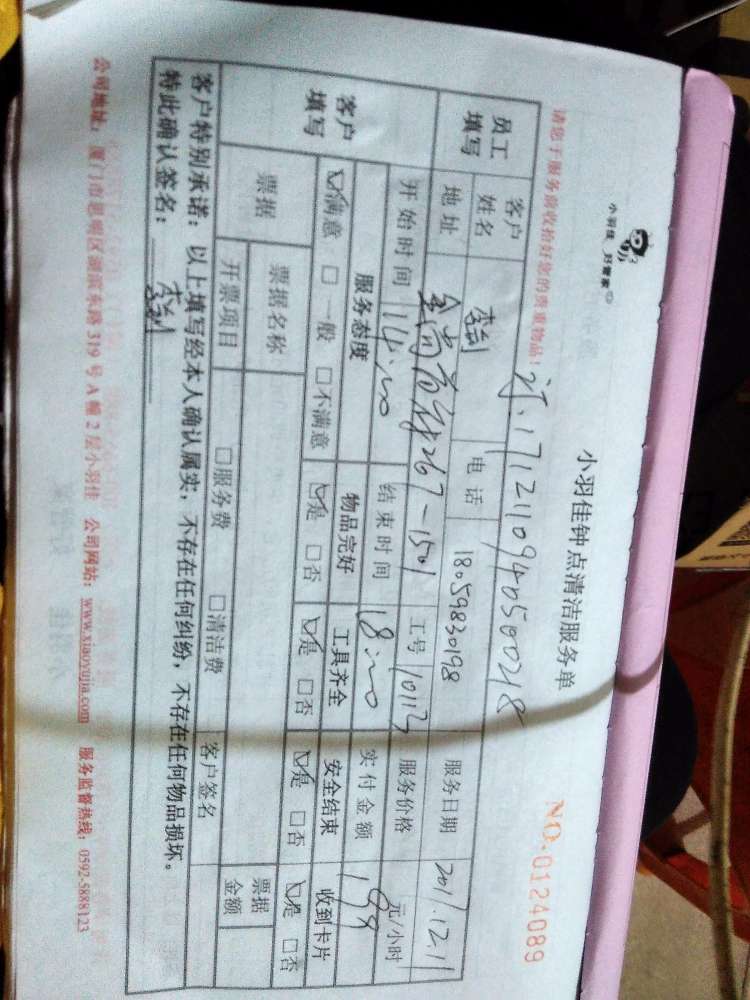 小羽佳 好管家
小羽佳钟点清洁服务单
NO.0124089
请您于服务前收拾好您的贵重物品！
1712110940500218
员工填写 客户姓名 电话 18059830198 服务日期 2017.12.11
地址 267-1501 工号 服务价格 元/小时
客户填写 开始时间 14:00 结束时间 18:00 实付金额 198
服务态度 物品完好 工具齐全 安全结束 收到卡片
☑满意 □一般 □不满意 ☑是 □否 ☑是 □否 ☑是 □否 ☑是 □否
票据 票据名称 票据金额
开票项目 □服务费 □清洁费 客户签名
客户特别承诺：以上填写经本人确认属实，不存在任何纠纷，不存在任何物品损坏。
特此确认签名：
公司地址：厦门市思明区湖滨东路319号A幢2层小羽佳 公司网站：www.xiaoyujia.com 服务监督热线：0592-5888123